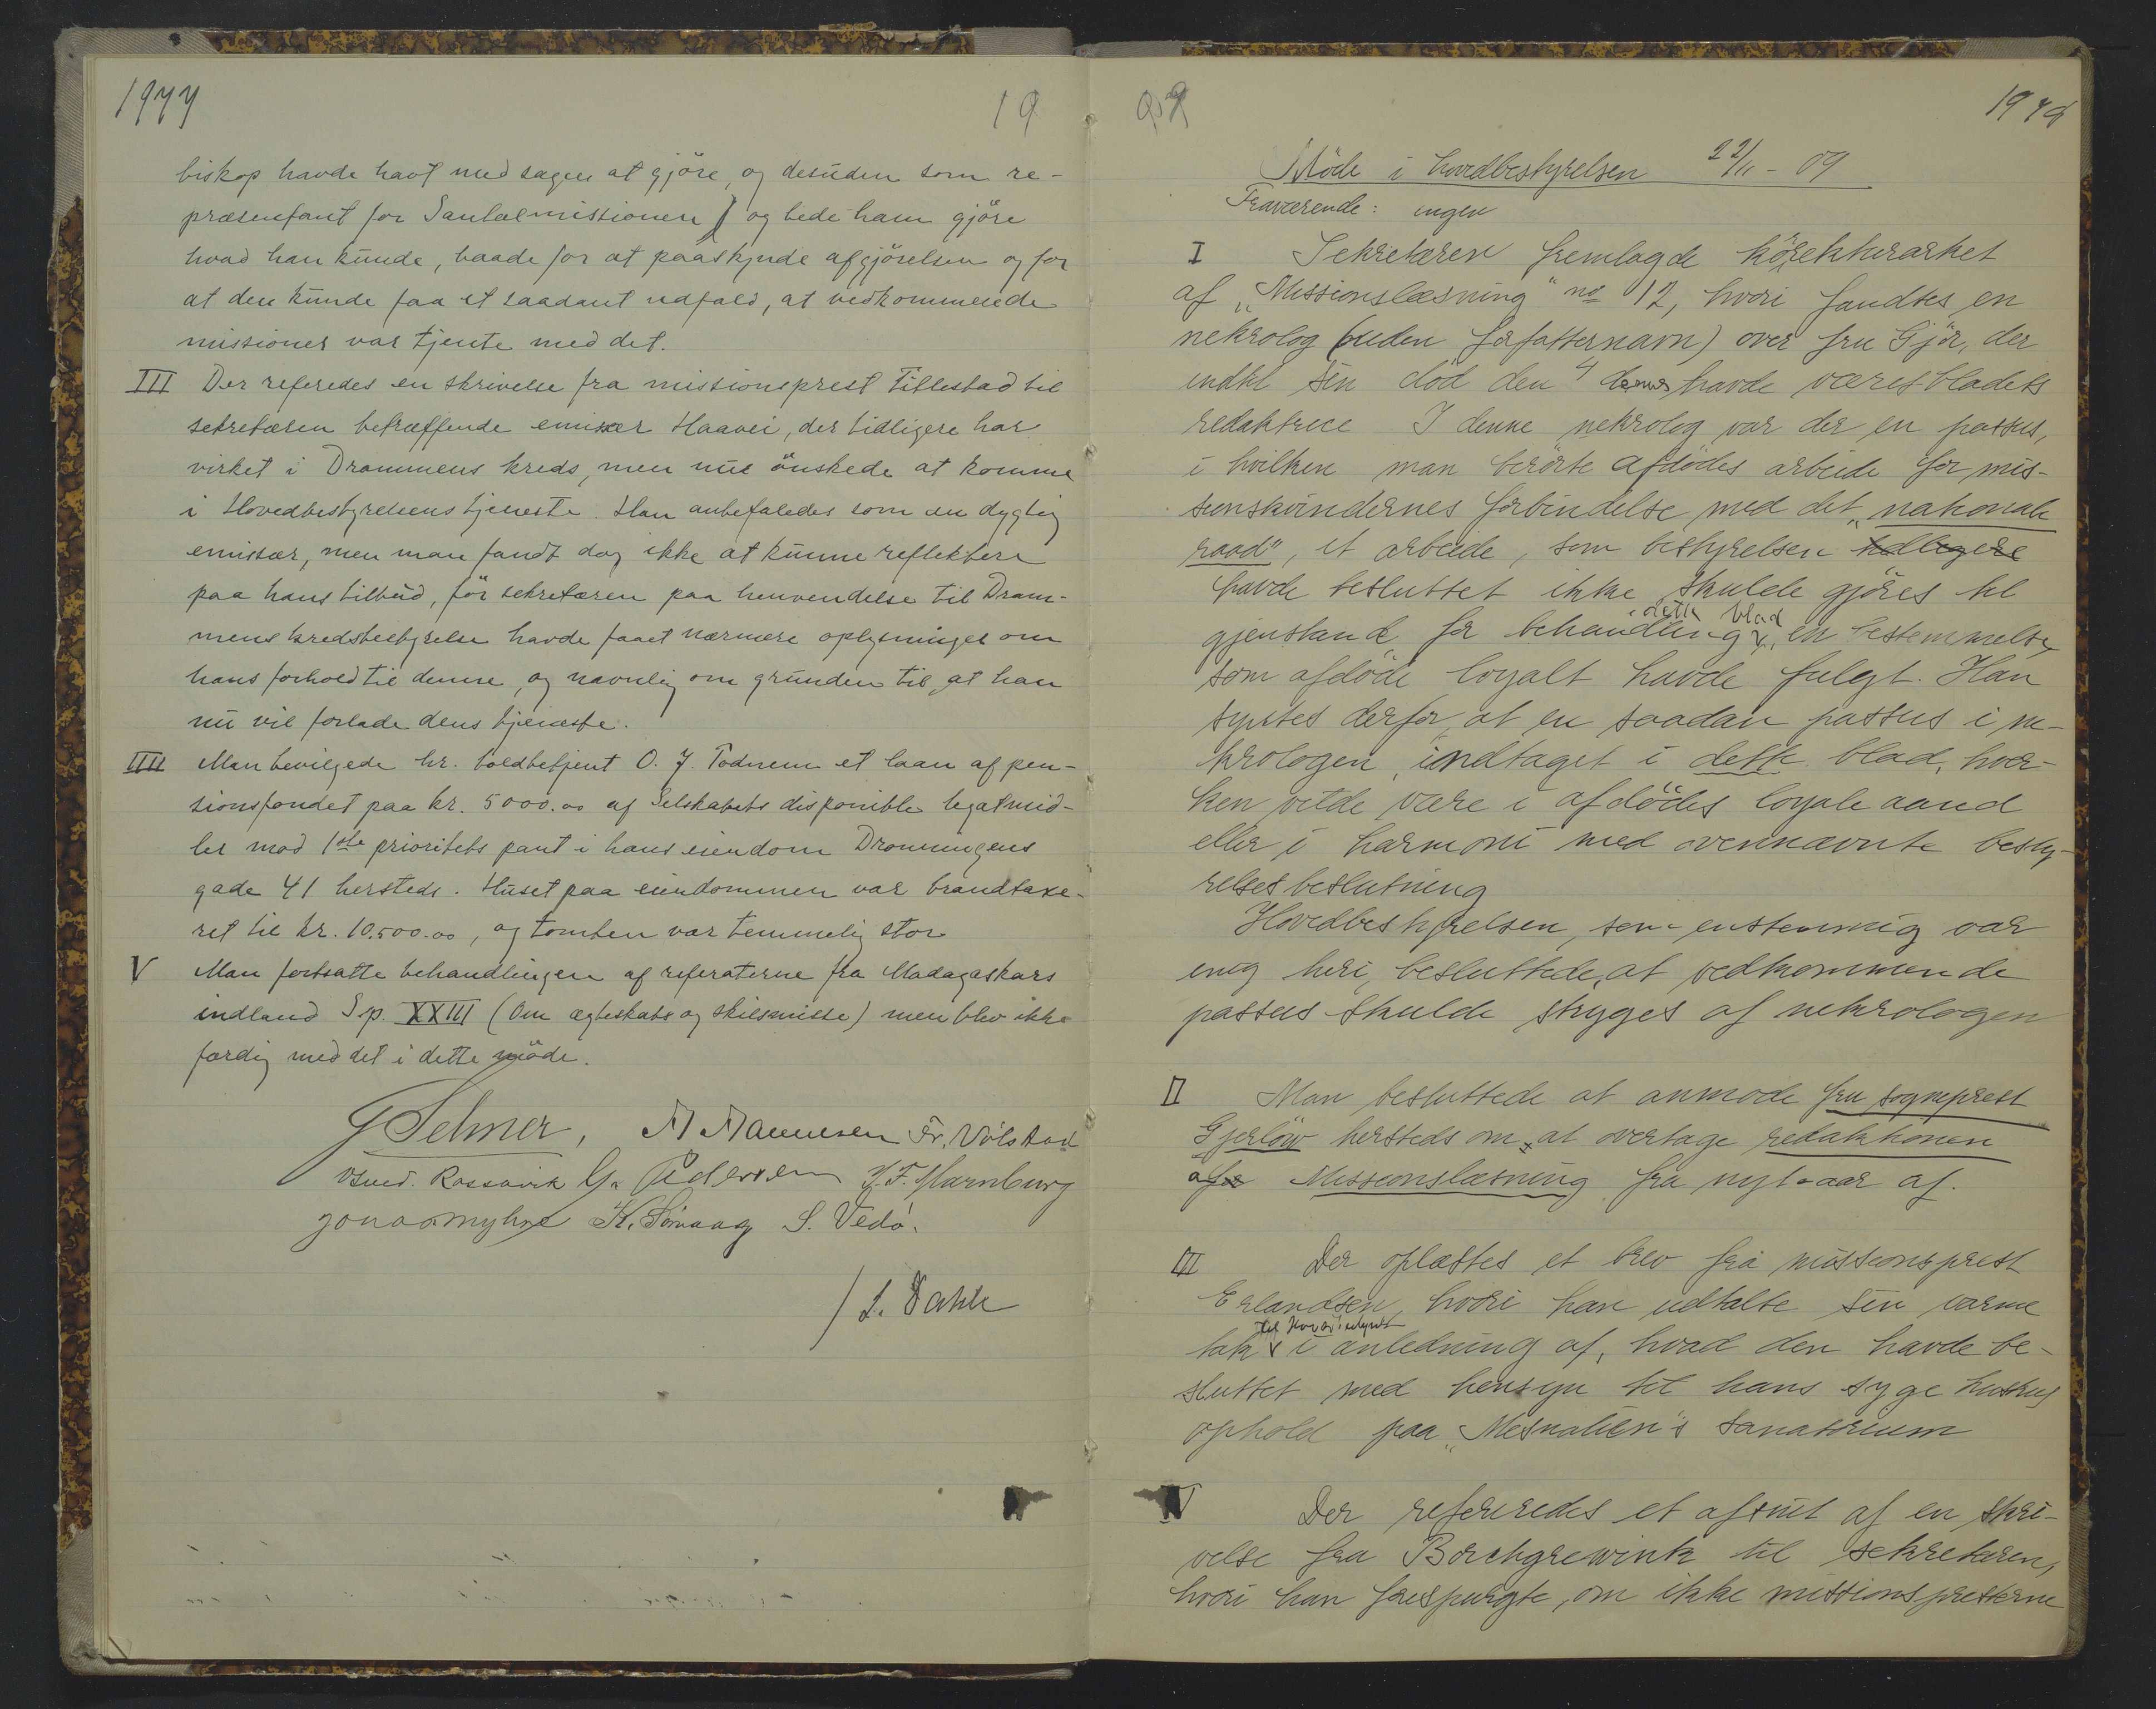 1977
19
biskop havde havt med sagen at gjöre, og desuden som re-
præsentant for Santalmissionen og bede ham gjöre
hvad han kunde, baade for at paaskynde afgjörelsen og for
at den kunde faa et saadant udfald, at vedkommende
missioner var tjente med det.
III Der referedes en skrivelse fra missionsprest Tillestad til
sekretæren betræffende emissær Haavei, der tidligere har
virket i Drammens kreds, men nu önskede at komme
i Hovedbestyrelsens tjeneste. Han anbefaledes som en dygtig
emissær, men man fandt dog ikke at kunne reflektere
paa hans tilbud, för sekretæren paa henvendelse til Dram-
mens kredsbestyrelse havde faaet nærmere oplysninger om
hans forhold til denne, og navnlig om grunden til, at han
nu vil forlade dens tjeneste.
IIII Man bevilgede hr. toldbetjent O. J. Todnem et laan af pen-
sionsfondet paa kr. 5000.00 af Selskabets disponible legatmid-
ler mod 1ste prioritets pant i hans eiendom Dronningens
gade 41 hersteds. Huset paa eiendommen var brandtaxe-
ret til kr. 10.500.00, og tomten var temmelig stor
V Man fortsatte behandlingen af referaterne fra Madagaskars
indland Sp. XXIII (Om ægteskabs og skilsmisse) men blev ikke
færdig med det i dette möde.
G Selmer, Fr. Völstad
Rossavik G. Pedersen
Jonas Myhre K. Sörvaag S. Vedö.
/ L. Dahle
Möde i hovedbestyrelsen 22/11 - 09
Fraværende: ingen
I Sekretæren fremlagde körrekturarket
af „Missionslæsning" no 12, hvori fandtes en
nekrolog (uden forfatternavn) over fru Gjör, der
indtil sin död den 4 dennes havde været bladets
redaktrice I denne nekrolog var der en passus,
i hvilken man berörte afdödes arbeide for mis-
sionskvindernes forbindelse med det „nationale
raad", et arbeide, som bestyrelsen tidligere
havde besluttet ikke skulde gjöres til
gjenstand for behandling i dette blad, en bestemmelse,
som afdöde loyalt havde fulgt. Han
syntes derfor, at en saadan passus i ne-
krologen, indtaget i dette blad, hver-
ken vilde være i afdödes loyale aand
eller i harmoni med ovennævnte besty-
relsesbeslutning
Hovedbestyrelsen, som enstemmig var
enig heri, besluttede, at vedkommende
passus skulde stryges af nekrologen
II Man besluttede at anmode fru sogneprest
Gjerlöw hersteds om at overtage redaktionen
af Missionslæsning fra nyt-aar af.
III Der oplæstes et brev fra missionsprest
Erlandsen, hvori han udtalte sin varme
tak til Hovedbestyrels i anledning af, hvad den havde be-
sluttet med hensyn til hans syge hustrus
ophold paa „Mesnalien"s sanatorium
IV Der refereredes et afsnit af en skri-
velse fra Borchgrevink til sekretæren,
hvori han forespurgte, om ikke missionspresterne